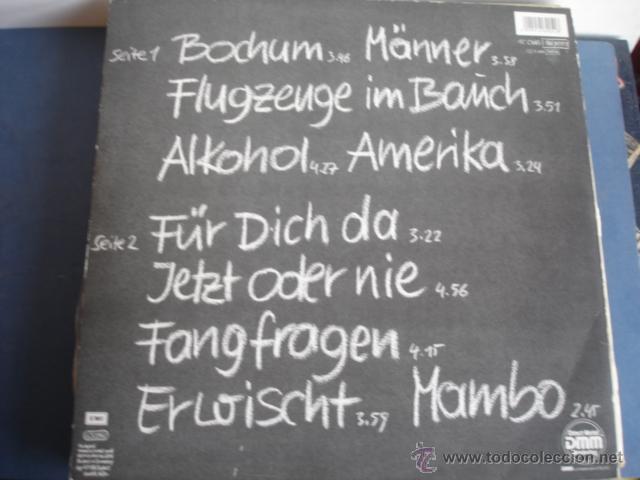 Seite 1 Bochum 3.46 Männer 3.58
Flugzeuge im Bauch 3.51
Alkohol 4.27 Amerika 3.24
Seite 2 Für Dich da 3.22
Jetzt oder nie 4.56
Fangfragen 4.15
Erwischt 3.59 Mambo 2.45
EMI
DMM
© www.todocoleccion.net